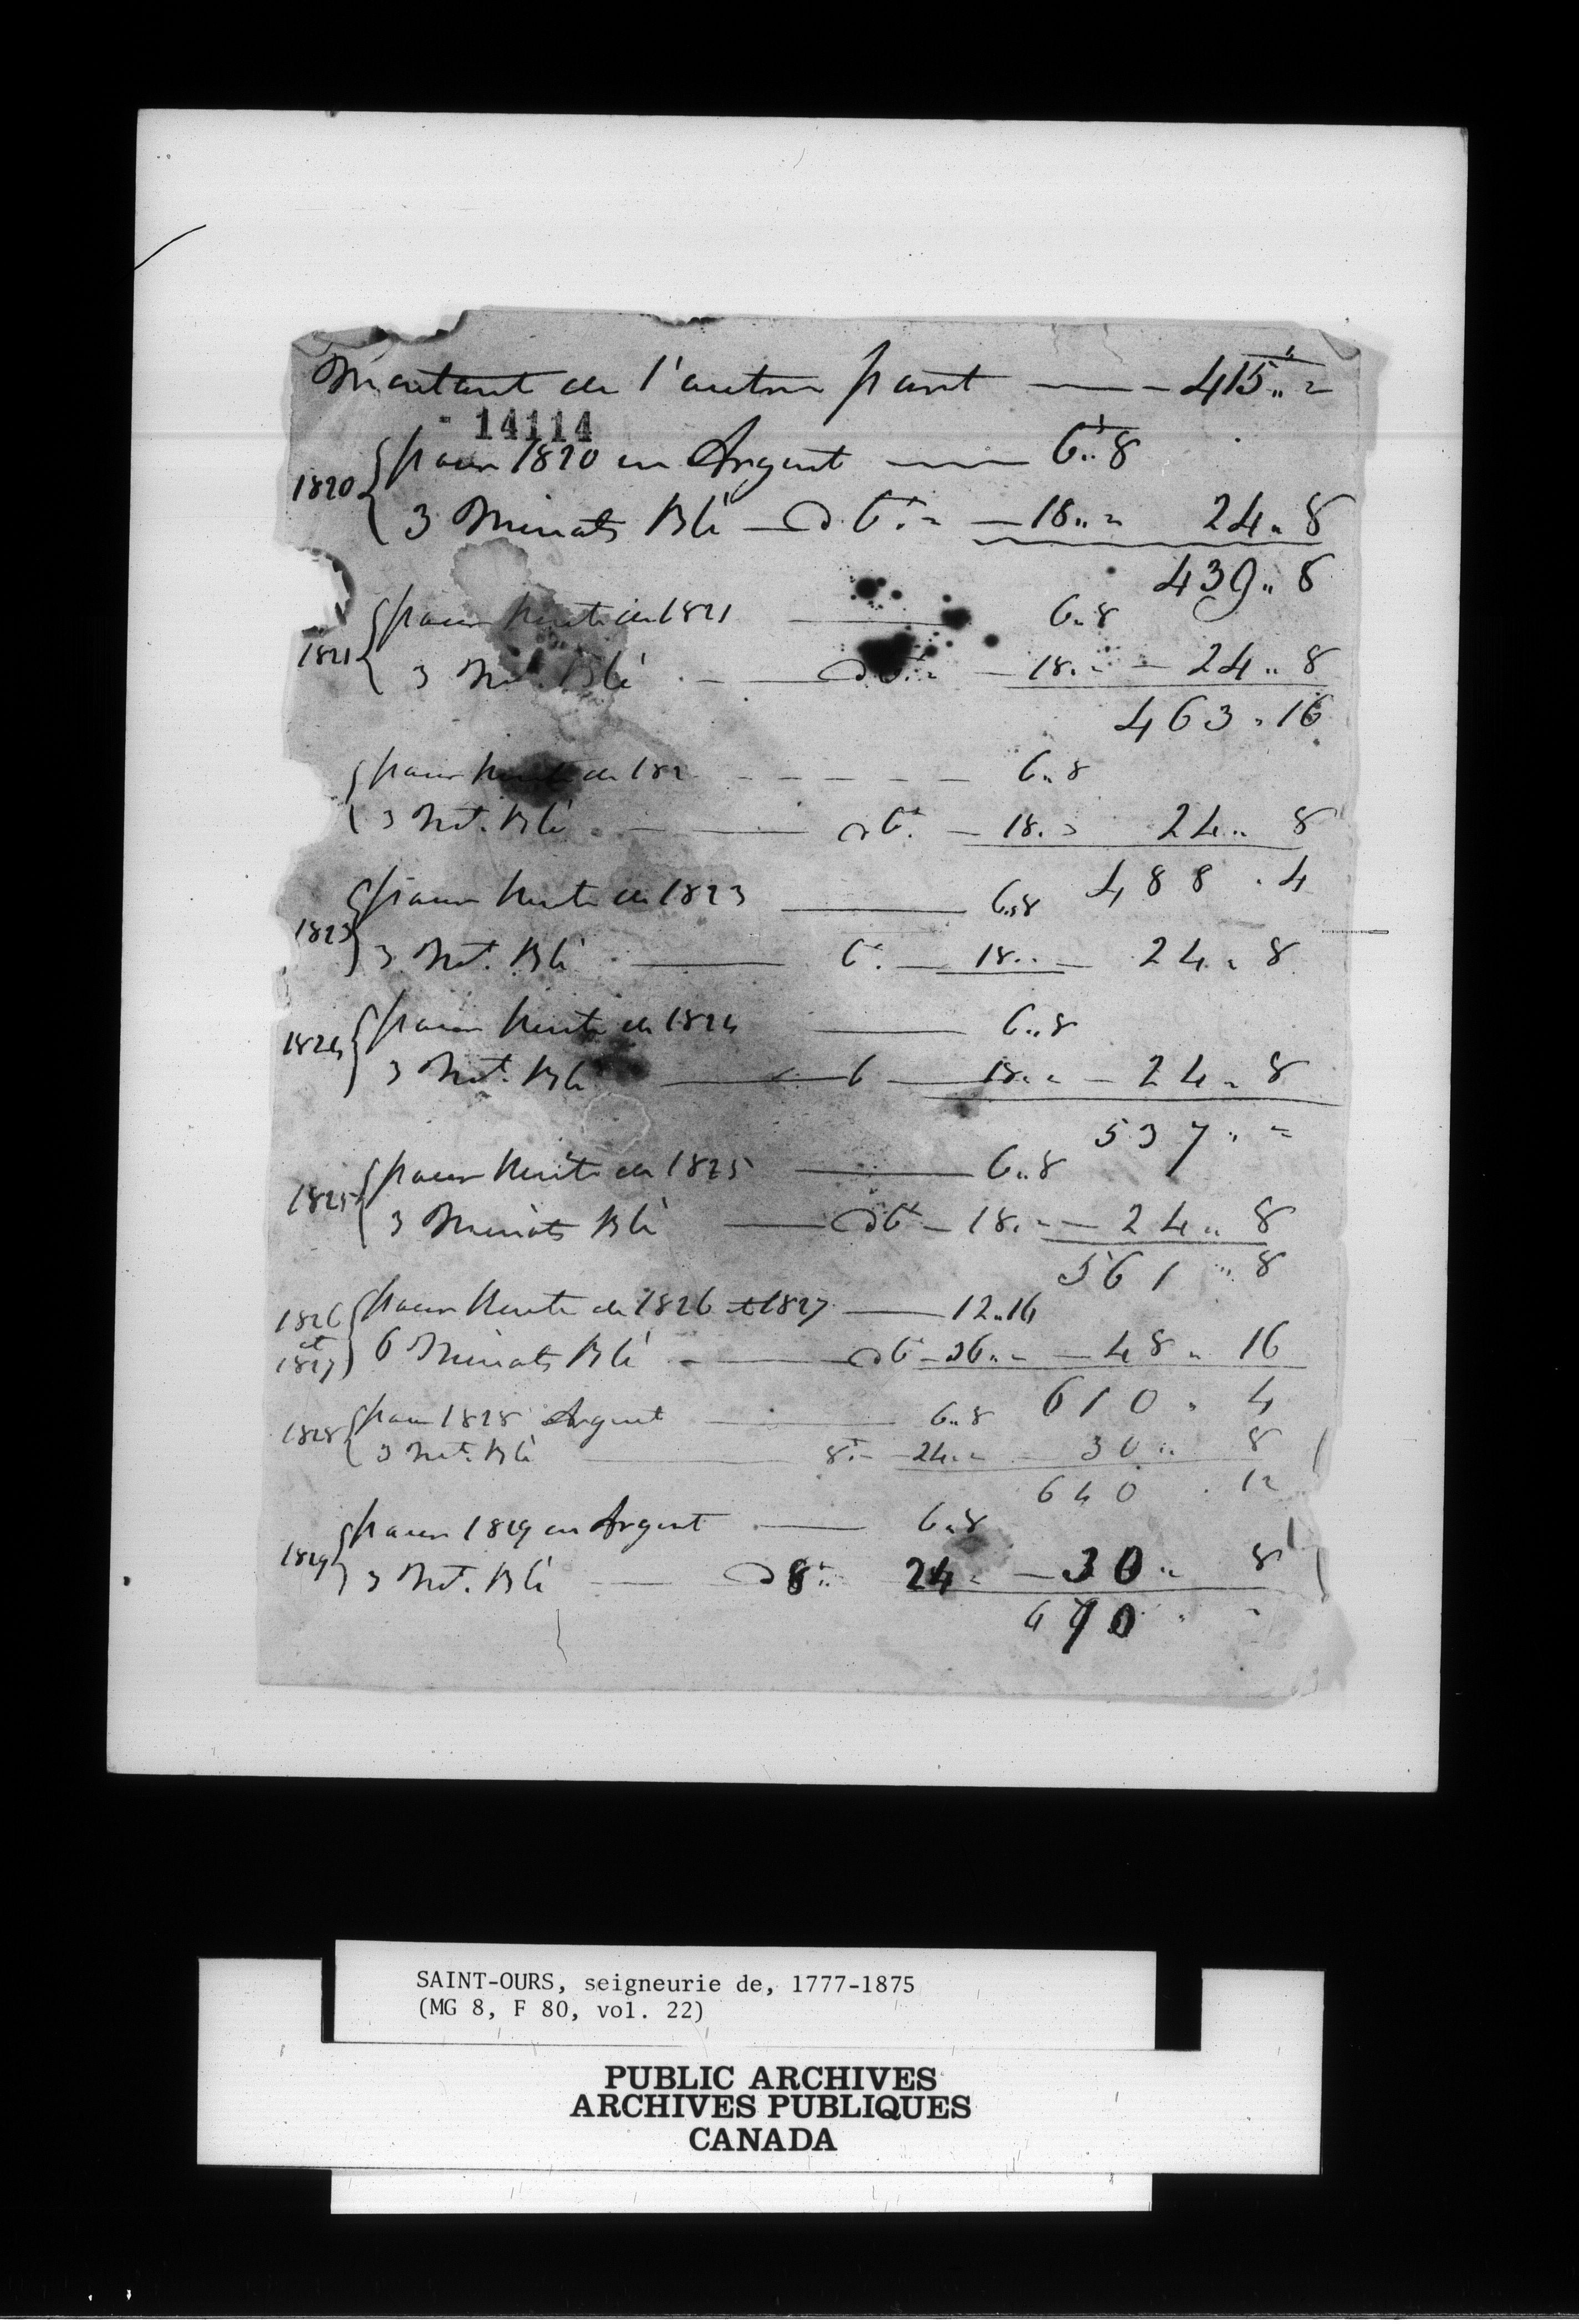 Montant de l'autre part — 415 „ =
14114
1820 { pour 1820 en Argent — 6 „ 8
3 Minots Blé — à 6# „ = — 18 „ = 24 „ 8
439 „ 8
pour Rente de 1821 — 6 „ 8
1821 { 3 Mts. Blé — à 6# „ = — 18 „ = — 24 „ 8
463 „ 16
{ pour Rente de 182 — 6 „ 8
3 Mts. Blé — à 6# — 18 „ = 24 „ 8
488 „ 4
pour Rente de 1823 — 6 „ 8
1823 { 3 Mts. Blé — 6# — 18 „ — 24 „ 8
1824 { pour Rente de 1824 — 6 „ 8
3 Mts. Blé — 6 — 18 „ = — 24 „ 8
537 „ =
pour Rente de 1825 — 6 „ 8
1825 { 3 Minots Blé — à 6# — 18 „ = — 24 „ 8
561 „ 8
1826 et 1827 { pour Rente de 1826 et 1827 — 12 „ 16
6 Minots Blé — à 6 — 36 „ = — 48 „ 16
610 „ 4
1828 { pour 1828 Argent — 6 „ 8
3 Mts. Blé — 8# — 24 „ = — 30 „ 8
640 „ 12
1829 { pour 1829 en Argent — 6 „ 8
3 Mts. Blé — à 8# „ 24 „ = — 30 „ 8
670 „ =
SAINT-OURS, seigneurie de, 1777-1875
(MG 8, F 80, vol. 22)
PUBLIC ARCHIVES
ARCHIVES PUBLIQUES
CANADA